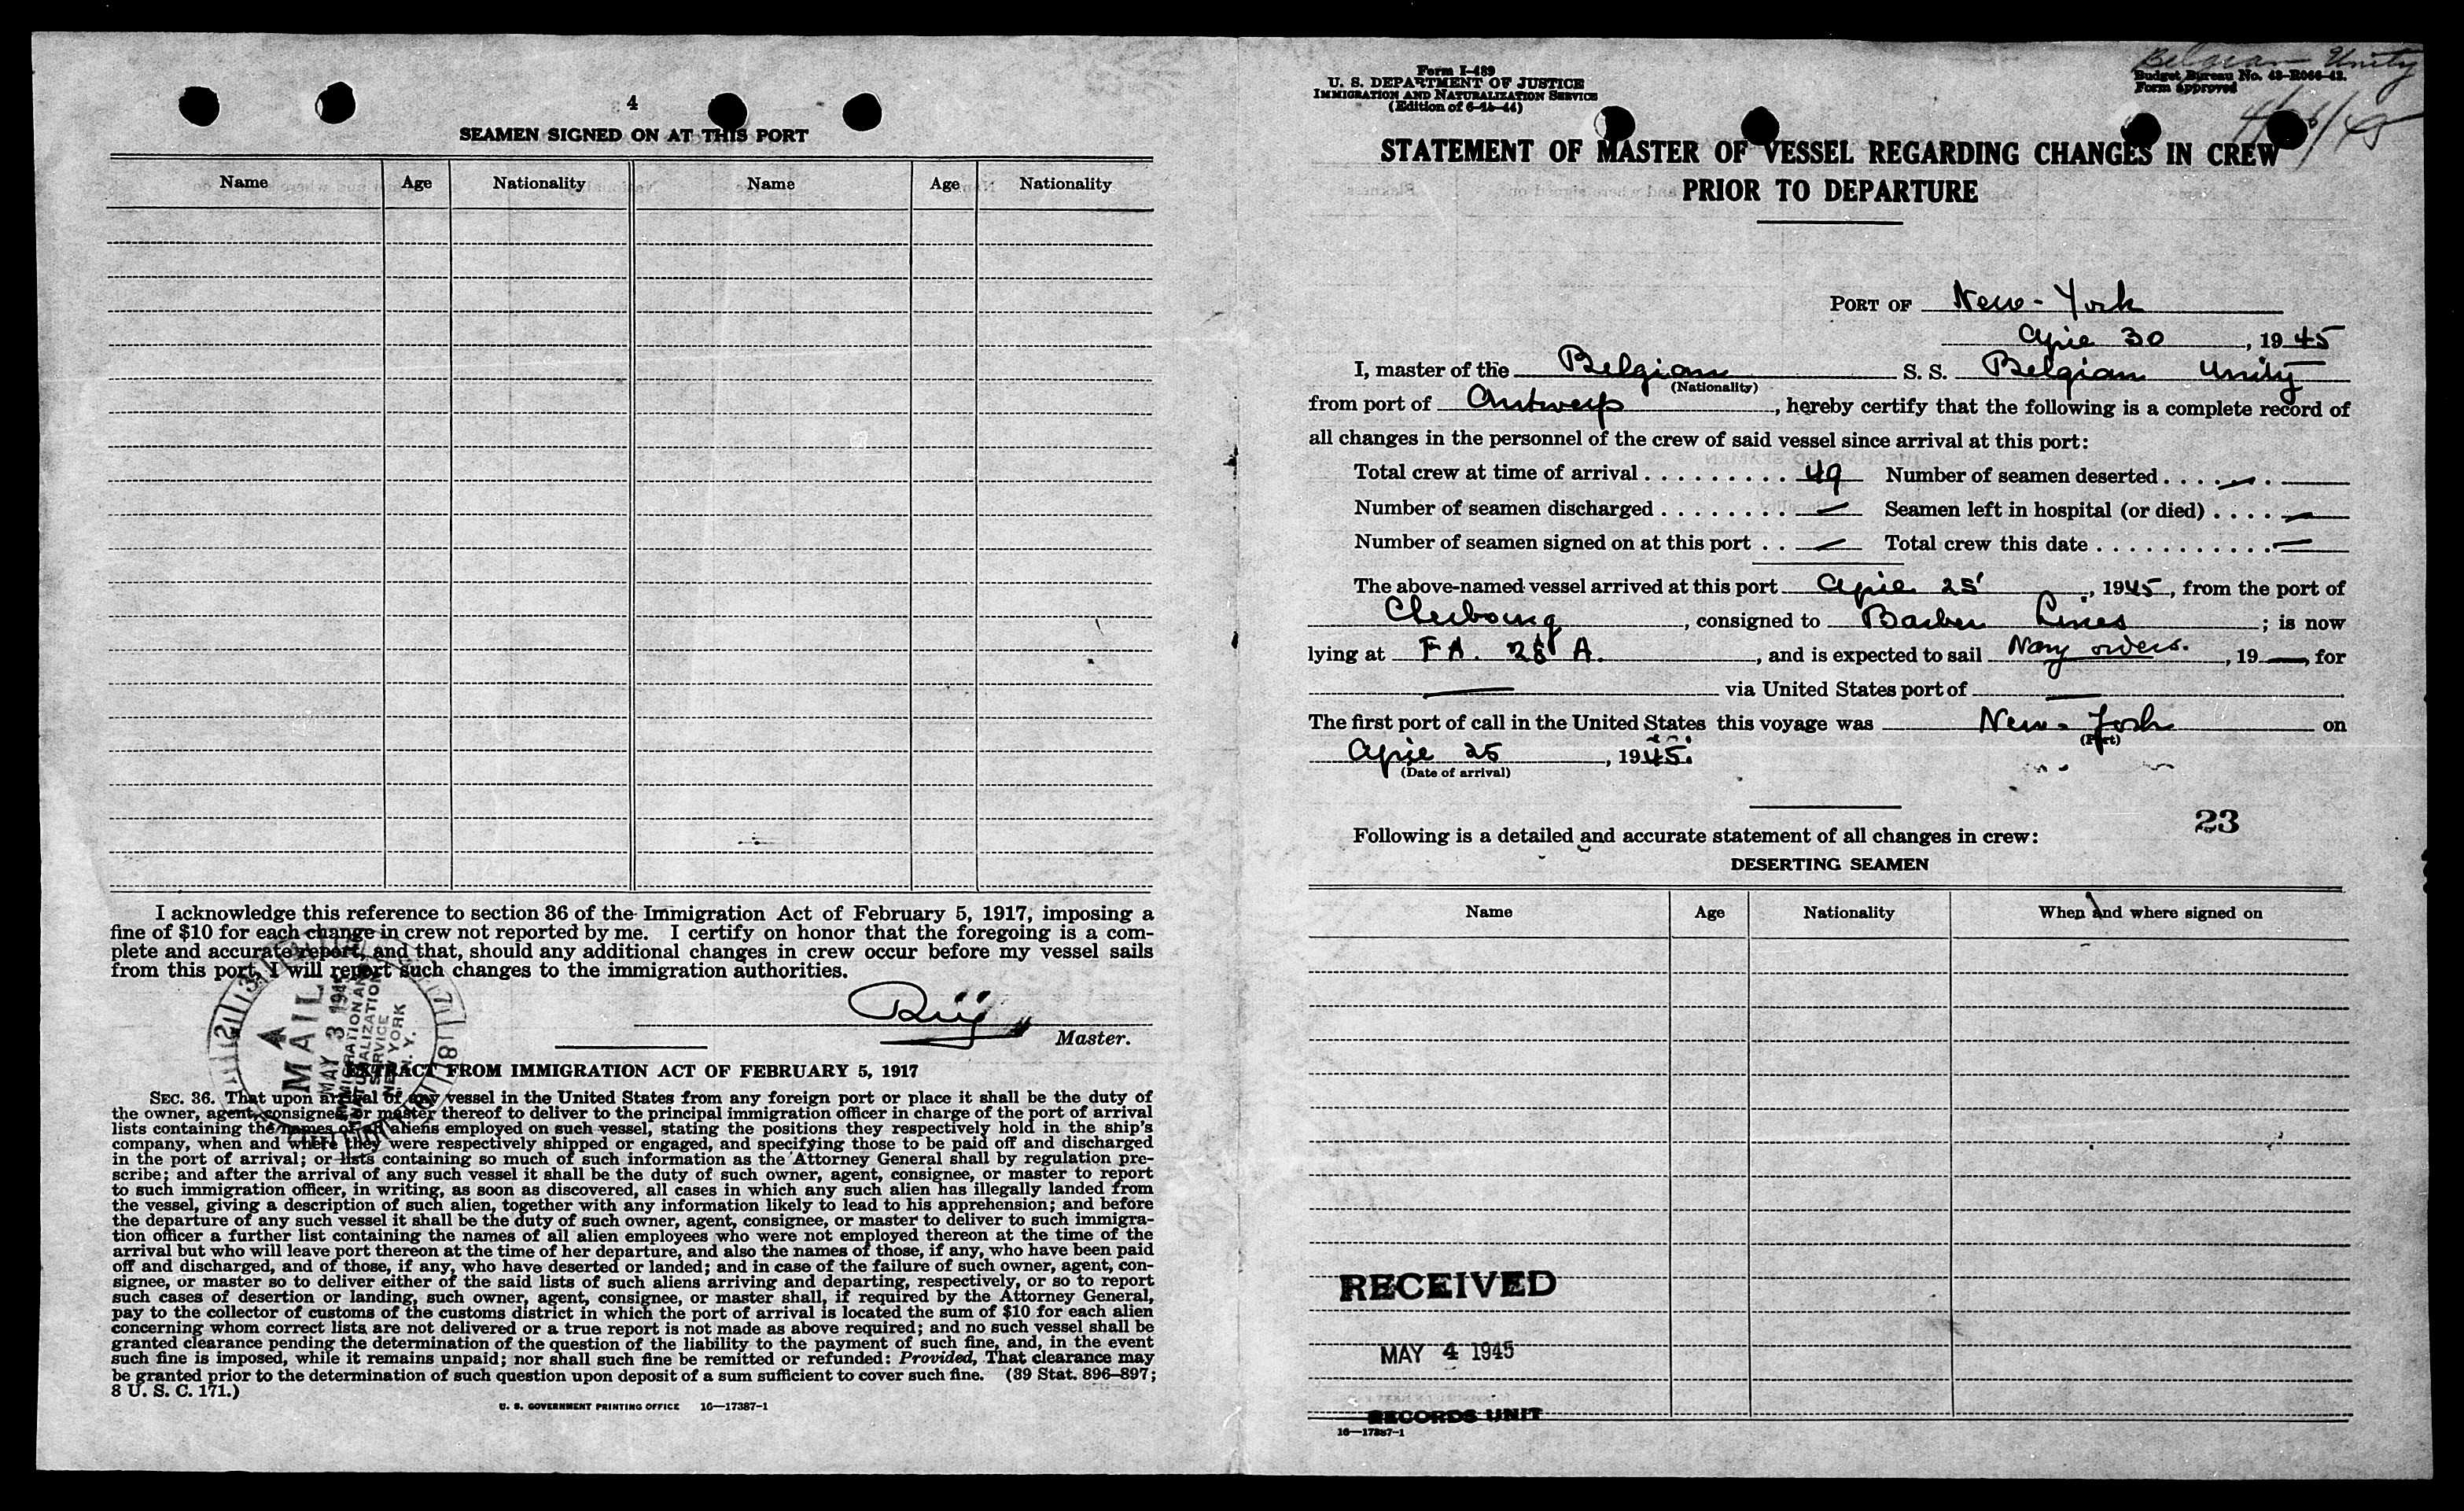 4
SEAMEN SIGNED ON AT THIS PORT
Name Age Nationality Name Age Nationality
I acknowledge this reference to section 36 of the Immigration Act of February 5, 1917, imposing a
fine of $10 for each change in crew not reported by me. I certify on honor that the foregoing is a com-
plete and accurate report, and that, should any additional changes in crew occur before my vessel sails
from this port, I will report such changes to the immigration authorities.
Master.
MAIL
MAY 3 1945
IMMIGRATION AND
NATURALIZATION
SERVICE
NEW YORK
N. Y.
EXTRACT FROM IMMIGRATION ACT OF FEBRUARY 5, 1917
SEC. 36. That upon arrival of any vessel in the United States from any foreign port or place it shall be the duty of
the owner, agent, consignee, or master thereof to deliver to the principal immigration officer in charge of the port of arrival
lists containing the names of all aliens employed on such vessel, stating the positions they respectively hold in the ship's
company, when and where they were respectively shipped or engaged, and specifying those to be paid off and discharged
in the port of arrival; or lists containing so much of such information as the Attorney General shall by regulation pre-
scribe; and after the arrival of any such vessel it shall be the duty of such owner, agent, consignee, or master to report
to such immigration officer, in writing, as soon as discovered, all cases in which any such alien has illegally landed from
the vessel, giving a description of such alien, together with any information likely to lead to his apprehension; and before
the departure of any such vessel it shall be the duty of such owner, agent, consignee, or master to deliver to such immigra-
tion officer a further list containing the names of all alien employees who were not employed thereon at the time of the
arrival but who will leave port thereon at the time of her departure, and also the names of those, if any, who have been paid
off and discharged, and of those, if any, who have deserted or landed; and in case of the failure of such owner, agent, con-
signee, or master so to deliver either of the said lists of such aliens arriving and departing, respectively, or so to report
such cases of desertion or landing, such owner, agent, consignee, or master shall, if required by the Attorney General,
pay to the collector of customs of the customs district in which the port of arrival is located the sum of $10 for each alien
concerning whom correct lists are not delivered or a true report is not made as above required; and no such vessel shall be
granted clearance pending the determination of the question of the liability to the payment of such fine, and, in the event
such fine is imposed, while it remains unpaid; nor shall such fine be remitted or refunded: Provided, That clearance may
be granted prior to the determination of such question upon deposit of a sum sufficient to cover such fine. (39 Stat. 896–897;
8 U. S. C. 171.)
U. S. GOVERNMENT PRINTING OFFICE 16—17387-1
Belgian Unity
Form I-489
U. S. DEPARTMENT OF JUSTICE
IMMIGRATION AND NATURALIZATION SERVICE
(Edition of 6-15-44)
Budget Bureau No. 43-R066-43.
Form approved
STATEMENT OF MASTER OF VESSEL REGARDING CHANGES IN CREW
PRIOR TO DEPARTURE
PORT OF New-York
April 30, 1945
I, master of the Belgian S. S. Belgian Unity
(Nationality)
from port of Antwerp, hereby certify that the following is a complete record of
all changes in the personnel of the crew of said vessel since arrival at this port:
Total crew at time of arrival . . . . . . . . . 49 Number of seamen deserted . . . . — .
Number of seamen discharged . . . . . . . . — Seamen left in hospital (or died) . . . . —
Number of seamen signed on at this port . . — Total crew this date . . . . . . . . . . . . —
The above-named vessel arrived at this port April 25, 1945, from the port of
Cherbourg, consigned to Barber Lines; is now
lying at F.A. 28 A., and is expected to sail Navy orders., 19 —, for
— via United States port of —.
The first port of call in the United States this voyage was New-York on
(Port)
April 25, 1945.
(Date of arrival)
23
Following is a detailed and accurate statement of all changes in crew:
DESERTING SEAMEN
Name Age Nationality When and where signed on
RECEIVED
MAY 4 1945
RECORDS UNIT
16—17387-1